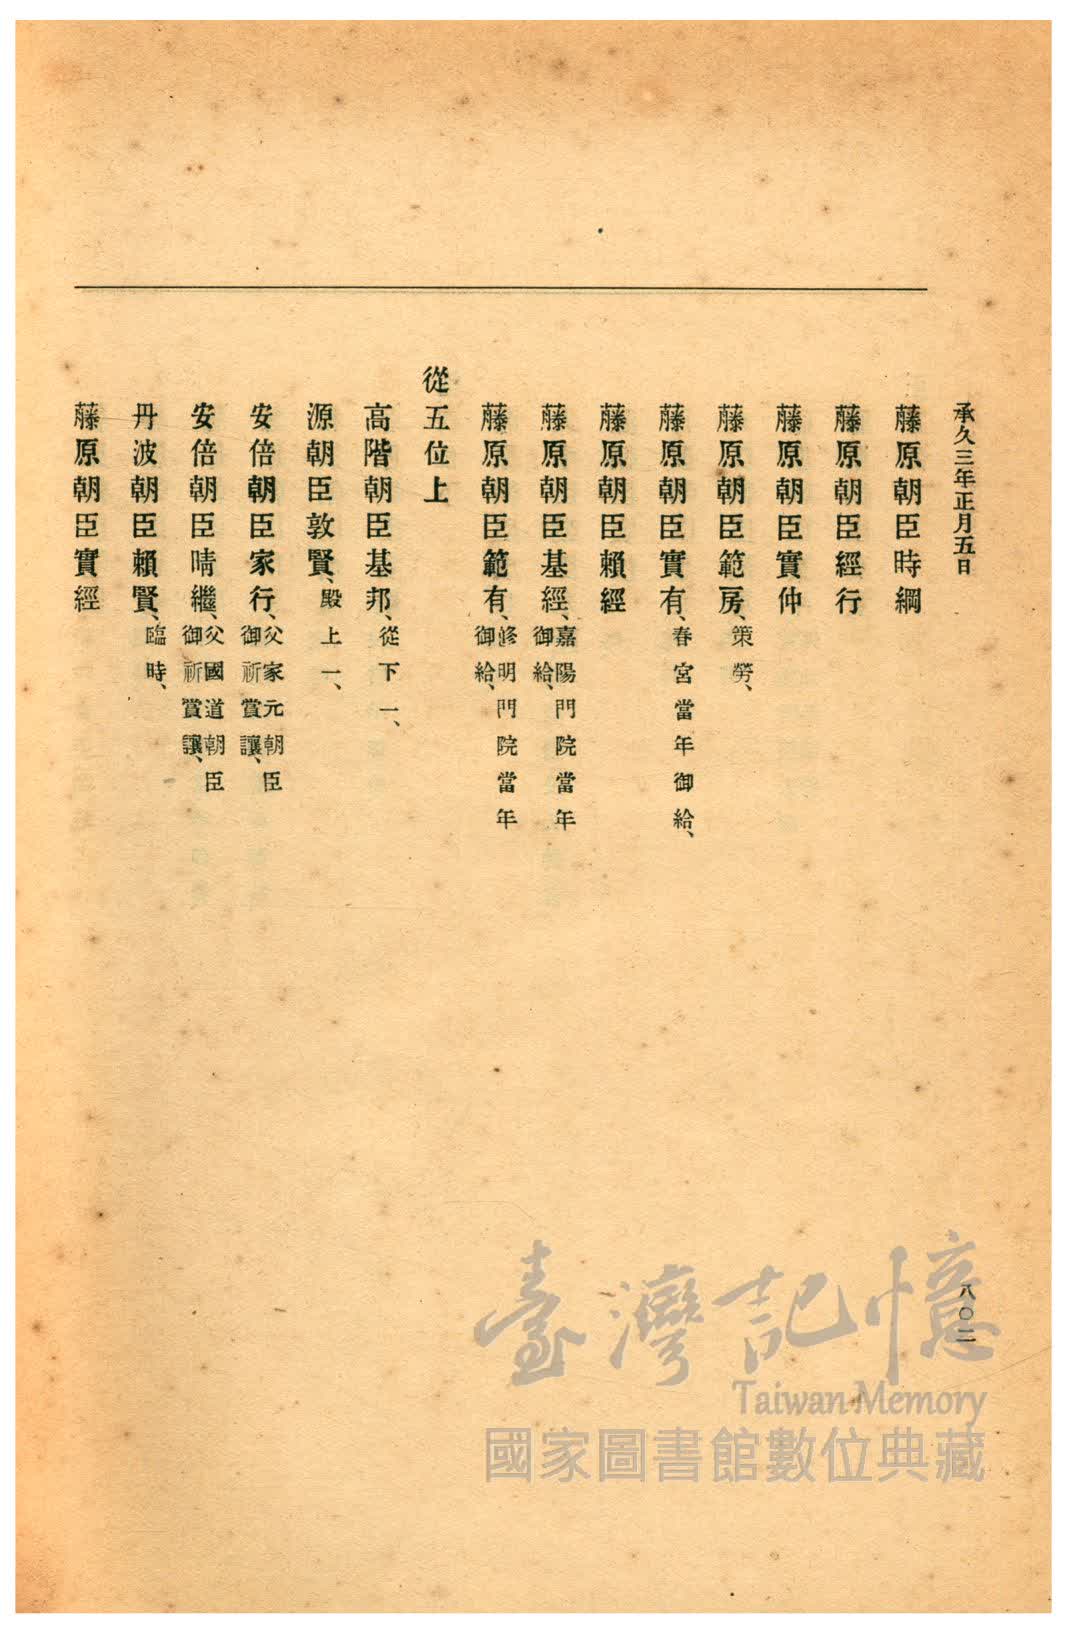 承久三年正月五日
藤原朝臣時綱
藤原朝臣經行
藤原朝臣實仲
藤原朝臣範房、策勞、
藤原朝臣實有、春宮當年御給、
藤原朝臣賴經
藤原朝臣基經、嘉陽門院當年
御給、
藤原朝臣範有、修明門院當年
御給、
從五位上
高階朝臣基邦、從下一、
源朝臣敦賢、殿上一、
安倍朝臣家行、父家元朝臣
御祈賞讓、
安倍朝臣晴繼、父國道朝臣
御祈賞讓、
丹波朝臣賴賢、臨時、
藤原朝臣實經
八〇二
臺灣記憶
Taiwan Memory
國家圖書館數位典藏